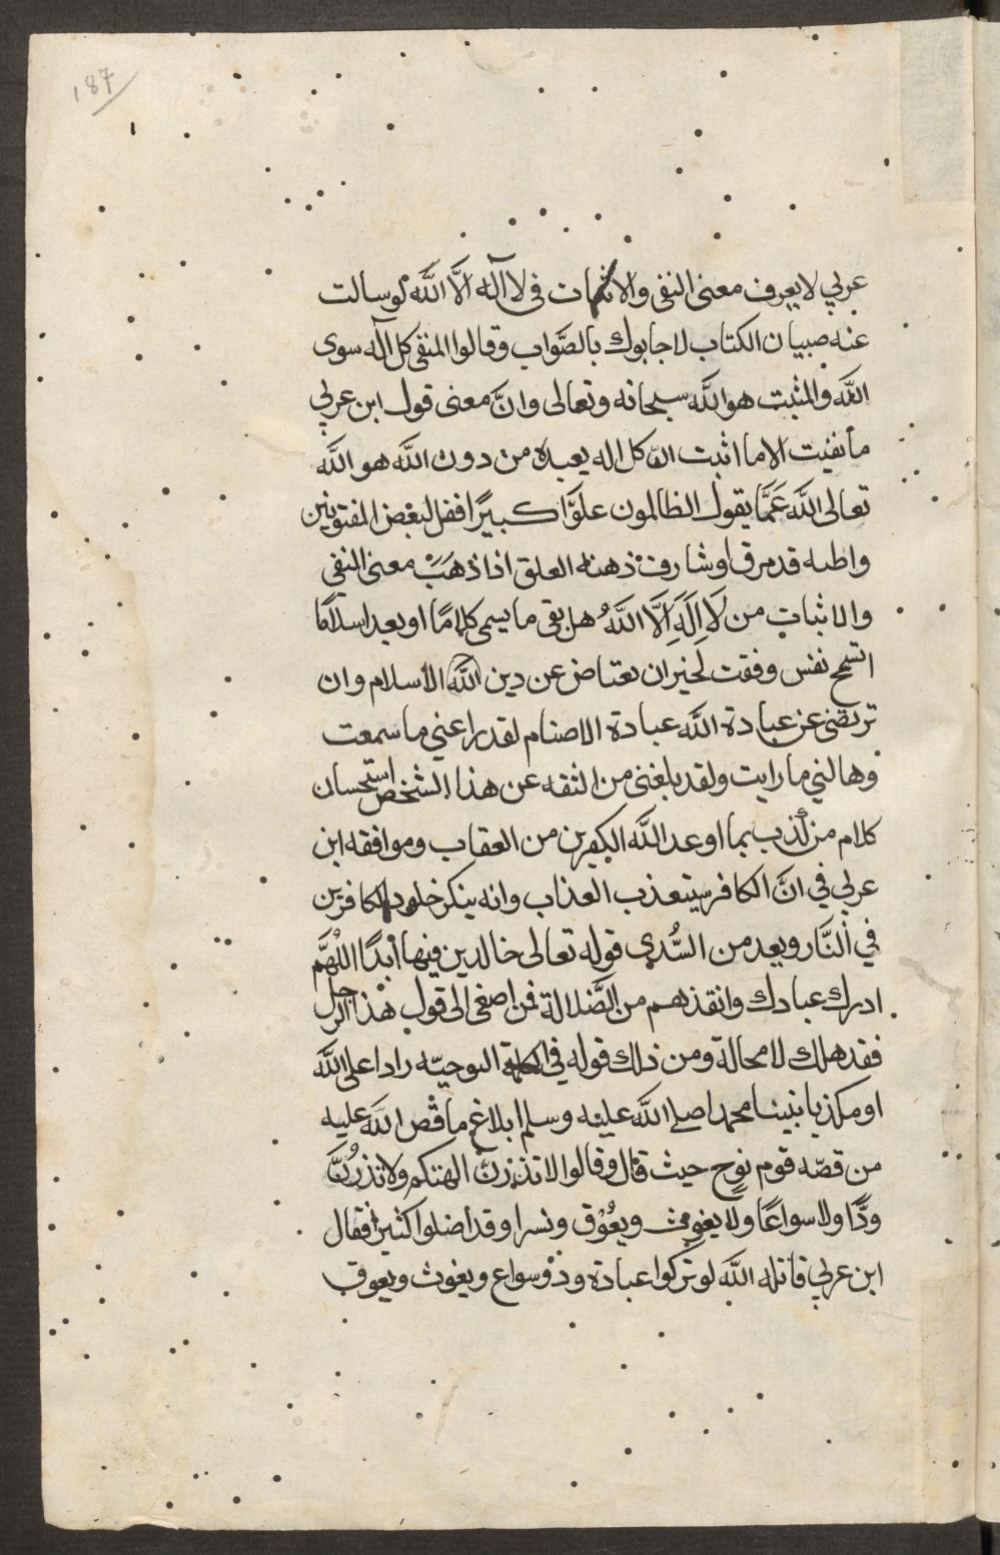 187
عربي لا يعرف معنى النفى والاثبات فى لا آله الَّا اللَّه لوسالت
عنه صبيان الكتاب لاجابوك بالصَّواب وقالوا المنفى كل آله سوى
اللَّه والمثبت هو اللَّه سبحانه وتعالى وانَّ معنى قول ابن عربي
ما نفيت الا ما اثبت انّ كل اله يعبد من دون اللَّه هو اللَّه
تعالى اللَّه عَمَّا يقول الظالمون علوَّا كبيرًا فقل لبعض المفتونين
واظنه قد مرق او شارف ذهنه العلق اذا ذهَبَ معنى النفى
والاثبات من لَا اِلَهَ اِلَّا اللَّهُ هل بقى ما يسمى كلامًا او يعد اسلامًا
اتسمح نفس وفقت لخير ان تعتاض عن دين اللَّه الاسلام وان
ترتضى عن عبادة اللَّه عبادة الاصنام لقد راعني ما سمعت
وهالني ما رايت ولقد بلغنى من الثقه عن هذا الشخص استحسان
كلام من كذب بما اوعد اللَّه الكفرين من العقاب وموافقه ابن
عربي في انَّ الكافر يستعذب العذاب وانه ينكر خلود الكافرين
في النَّار ويعد من السُّدي قوله تعالى خالدين فيها أبدًا اللهُمَّ
ادرك عبادك وانقذهم من الضَّلالة فمن اصغى الى قول هذا الرجل
فقد هلك لا محالة ومن ذلك قوله في الكلمة النوحيّه رادا على اللَّه
او مكذبا نبينا محمدا صلى اللَّه عليه وسلم ابلاغ ما قص اللَّه عليه
من قصّه قوم نوح حيث قال وقالوا لا تذرنّ الهتكم ولا تذرُنّ
ودًّا ولا سواعًا ولا يغوث ويعُوْق ونسرا وقد اضلوا كثيرا فقال
ابن عربي قاتله اللَّه لو تركوا عبادة ود وسواع ويغوث ويعوق